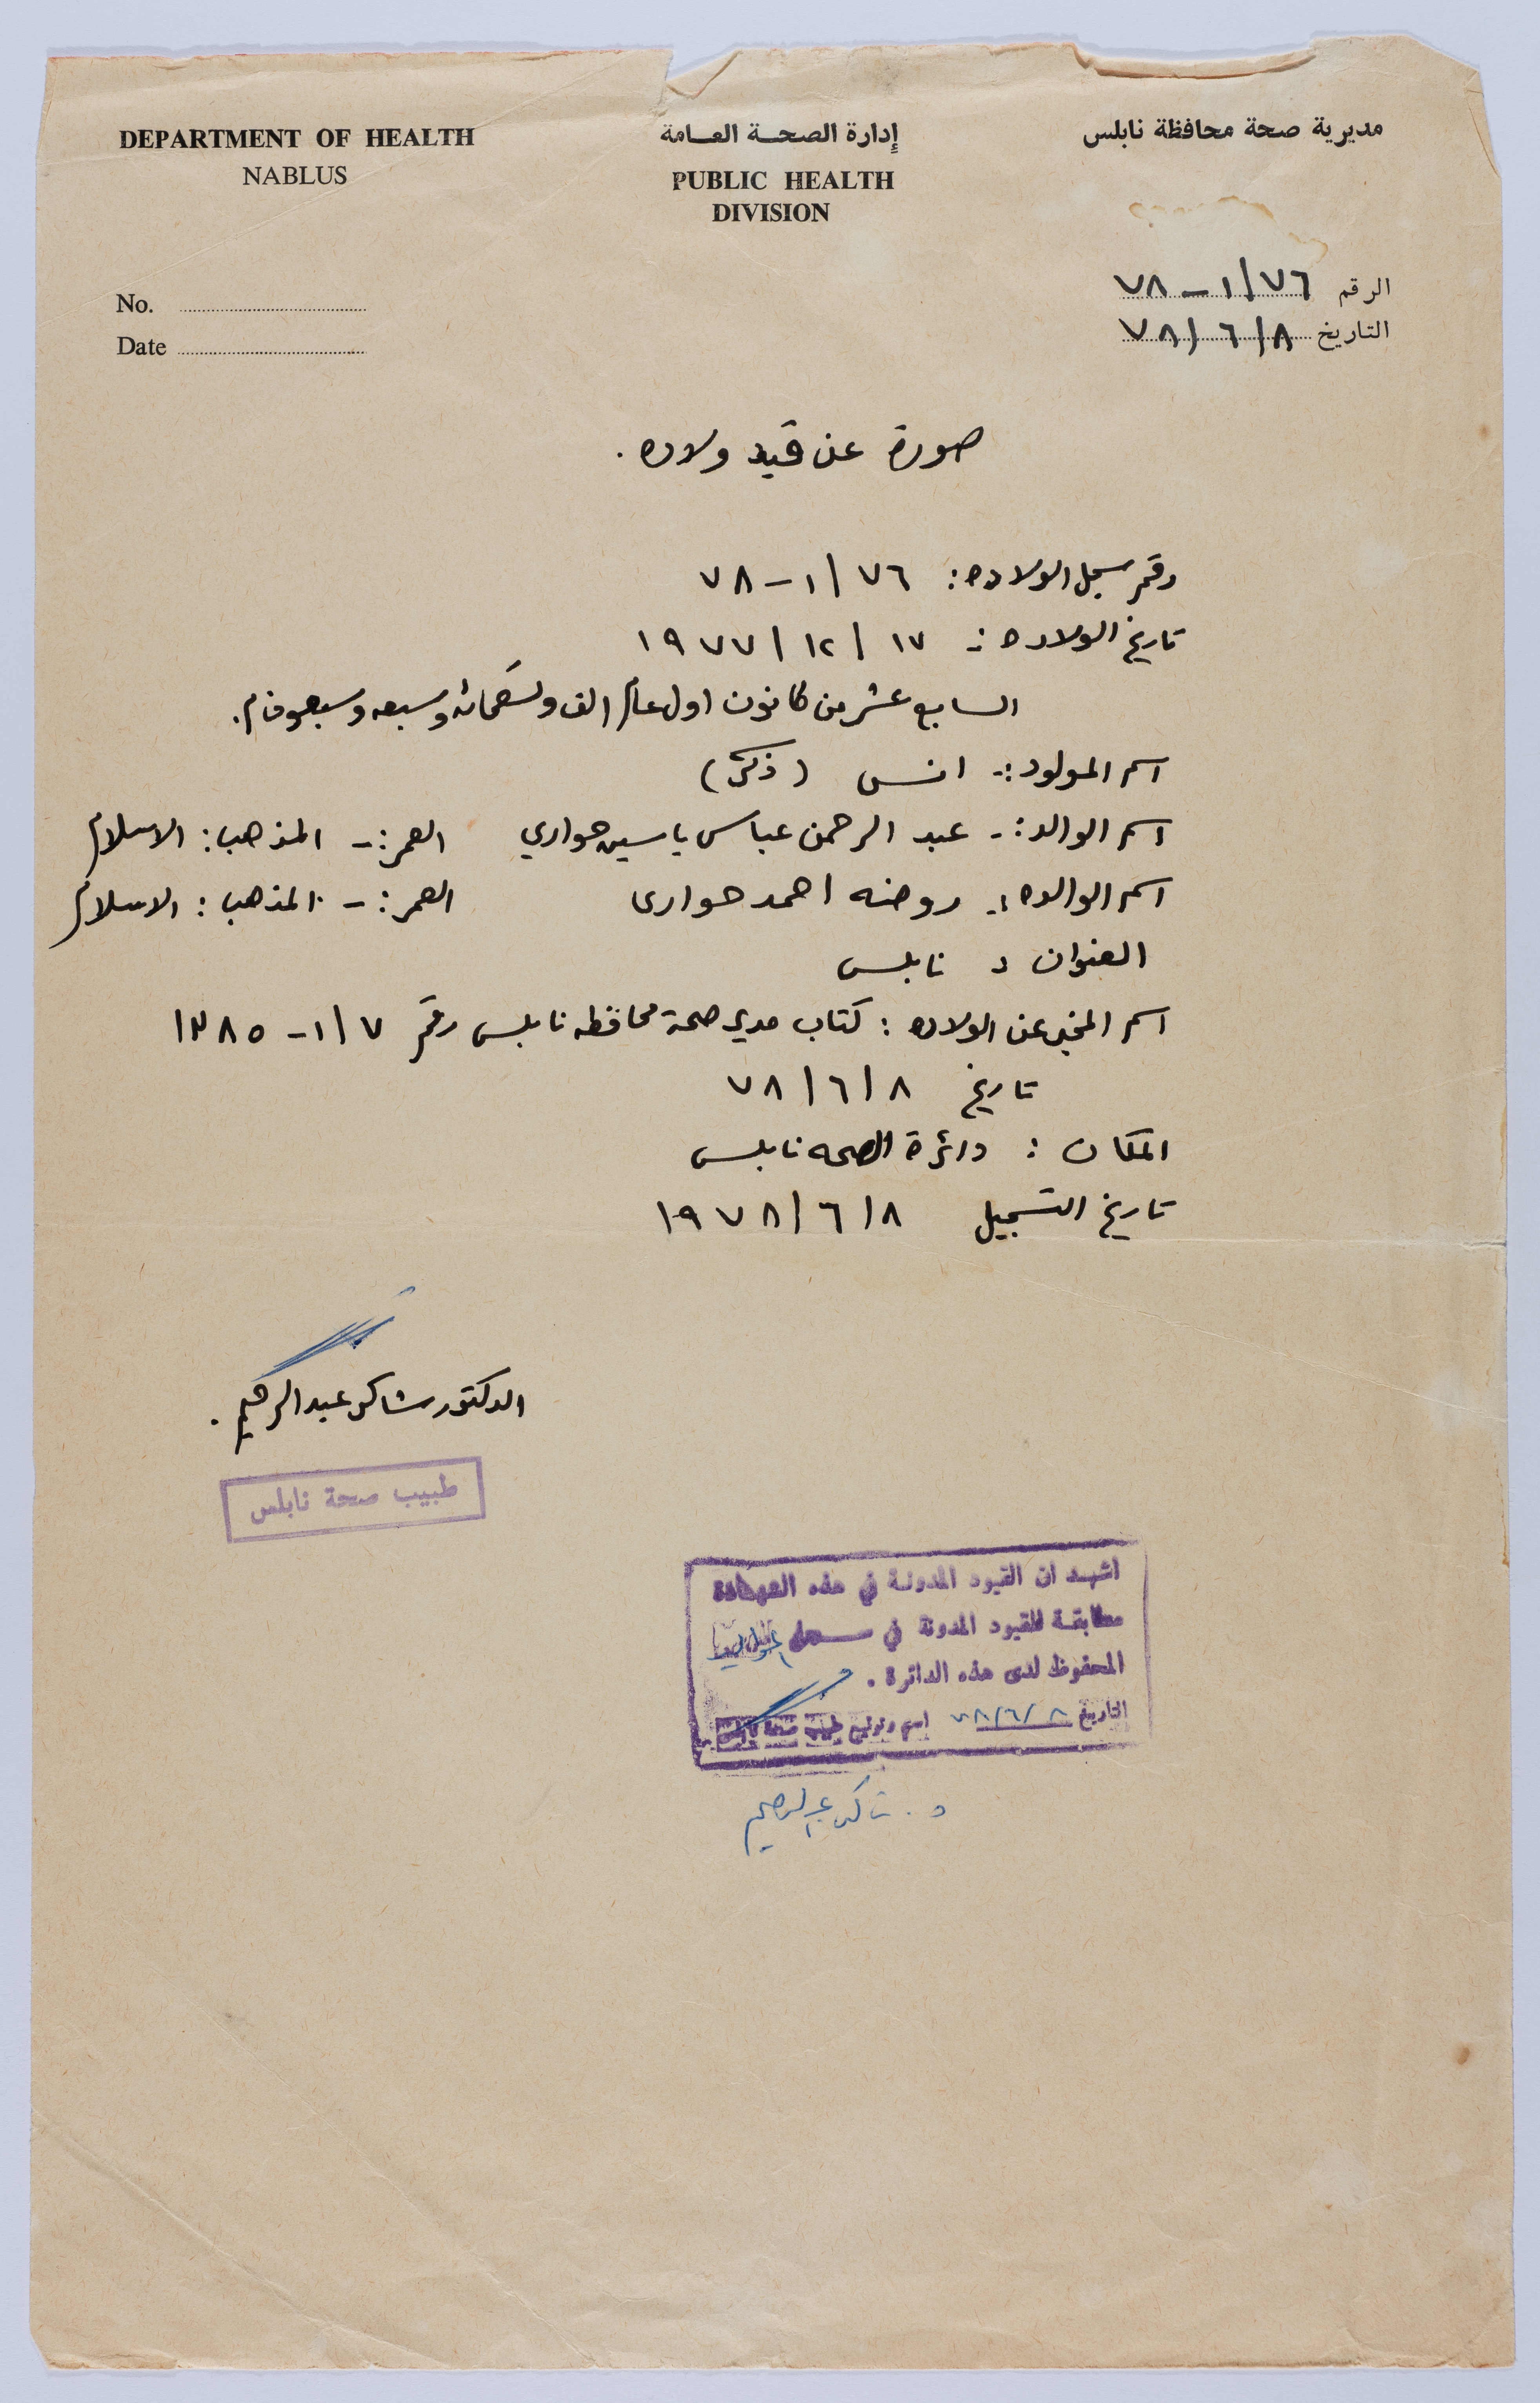 DEPARTMENT OF HEALTH
NABLUS
إدارة الصحة العامة
PUBLIC HEALTH
DIVISION
مديرية صحة محافظة نابلس
No.
Date
الرقم ٧٦/١-٧٨
التاريخ ٧٨/٦/٨
صورة عن قيد ولاده .
رقم سجل الولاده : ٧٦/١-٧٨
تاريخ الولاده :- ١٧/١٢/١٩٧٧
السابع عشر من كانون اول عام الف وتسعمائه وسبعه وسبعون م.
اسم المولود :- انس (ذكر)
اسم الوالد :- عبد الرحمن عباس ياسين حواري العمر :- المذهب : الاسلام
اسم الوالده :- روضه احمد حوارى العمر :- المذهب : الاسلام
العنوان : نابلس
اسم المخبر عن الولاده : كتاب مدير صحة محافظه نابلس رقم ٧/١-١٣٨٥
تاريخ ٧٨/٦/٨
المكان : دائرة الصحه نابلس
تاريخ التسجيل ١٩٧٨/٦/٨
الدكتور شاكر عبد الرحيم .
طبيب صحة نابلس
اشهد ان القيود المدونة في هذه الشهادة
مطابقة للقيود المدونة في سجل
المحفوظ لدى هذه الدائرة .
التاريخ ٧٨/٦/٨ اسم وتوقيع طبيب صحة نابلس
د. شاكر عبد الرحيم